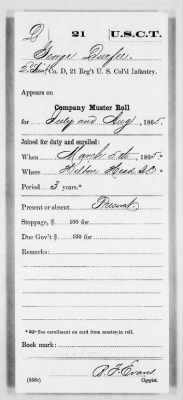 D 21 U.S.C.T.
George
Co. D, 21 Reg't U. S. Col'd Infantry.
Appears on
Company Muster Roll
for July and Aug, 1865.
Joined for duty and enrolled:
When March 5th, 1865.*
Where Hilton Head, S.C.*
Period 3 years.*
Present or absent Present
Stoppage, $ 100 for
Due Gov't $ 100 for
Remarks:
*See enrollment on card from muster-in roll.
Book mark:
(358c) B. F. Evans
Copyist.